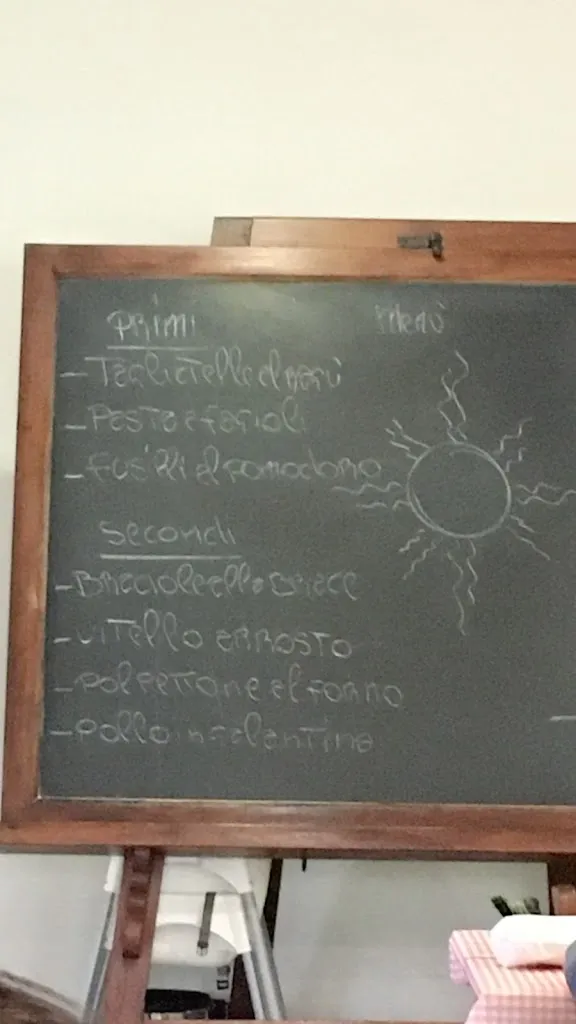 Menù
Primi
- Tagliatelle al ragù
- Pasta e fagioli
- Fusilli al pomodoro
Secondi
- Braciole alla brace
- Vitello arrosto
- Polpettone al forno
- Pollo in galantina